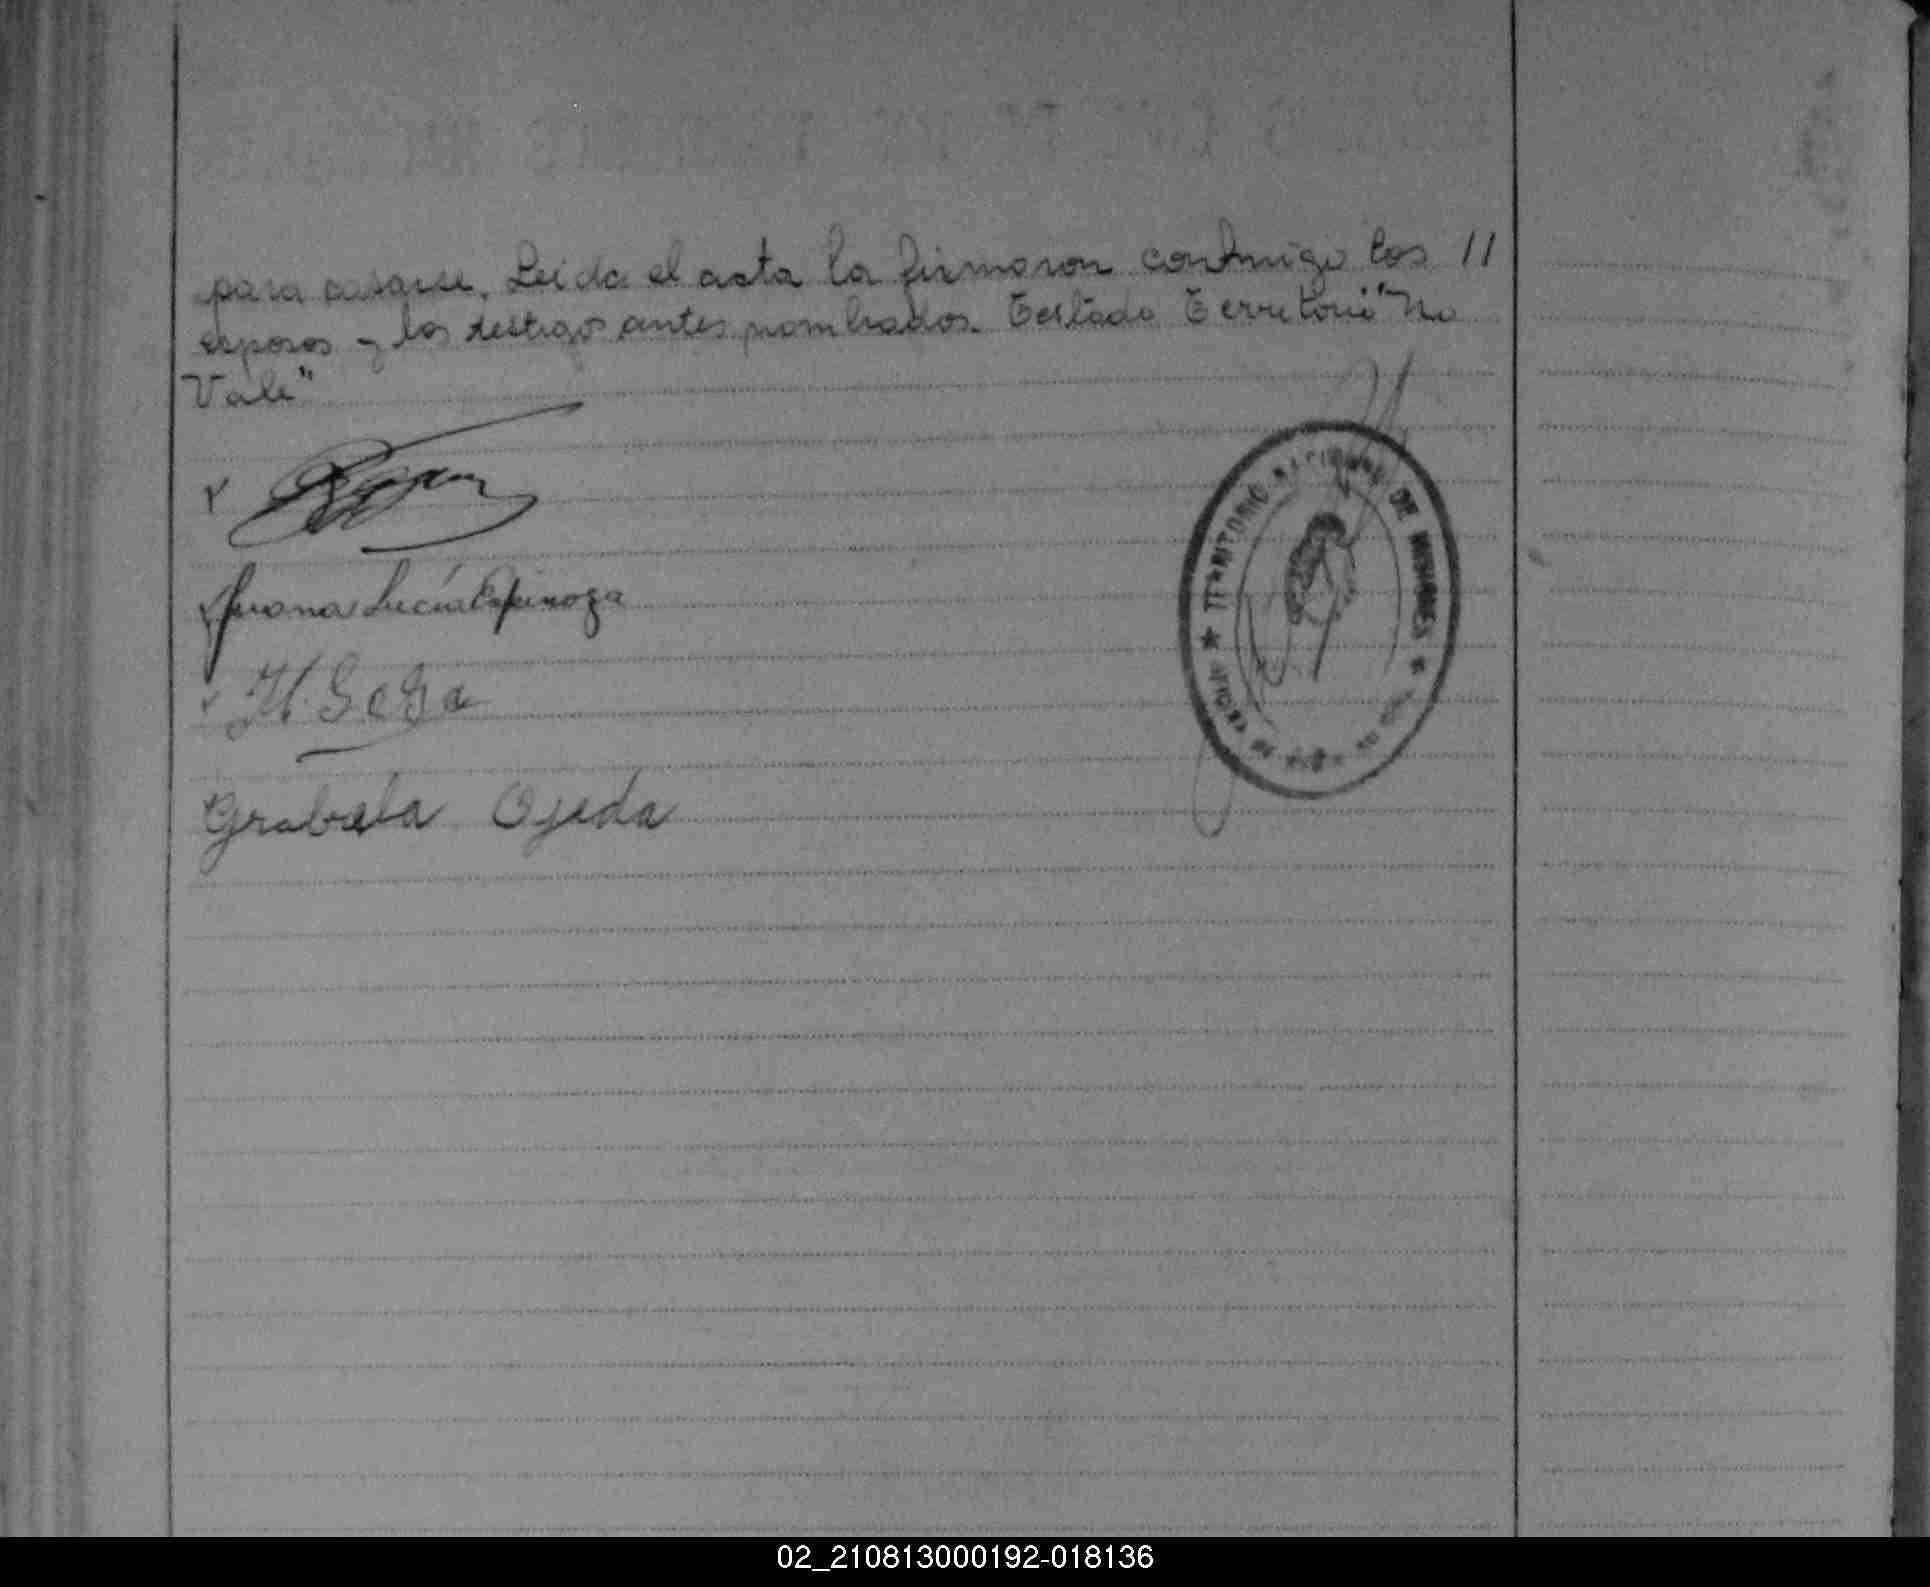 para casarse. Leida el acta la firmaron conmigo los //
esposos y los testigos antes nombrados. Testado Territorio "No
Vale"
Juana Lucía Espinoza
Grabiela Ojeda
★ TERRITORIO NACIONAL DE MISIONES ★
02_210813000192-018136